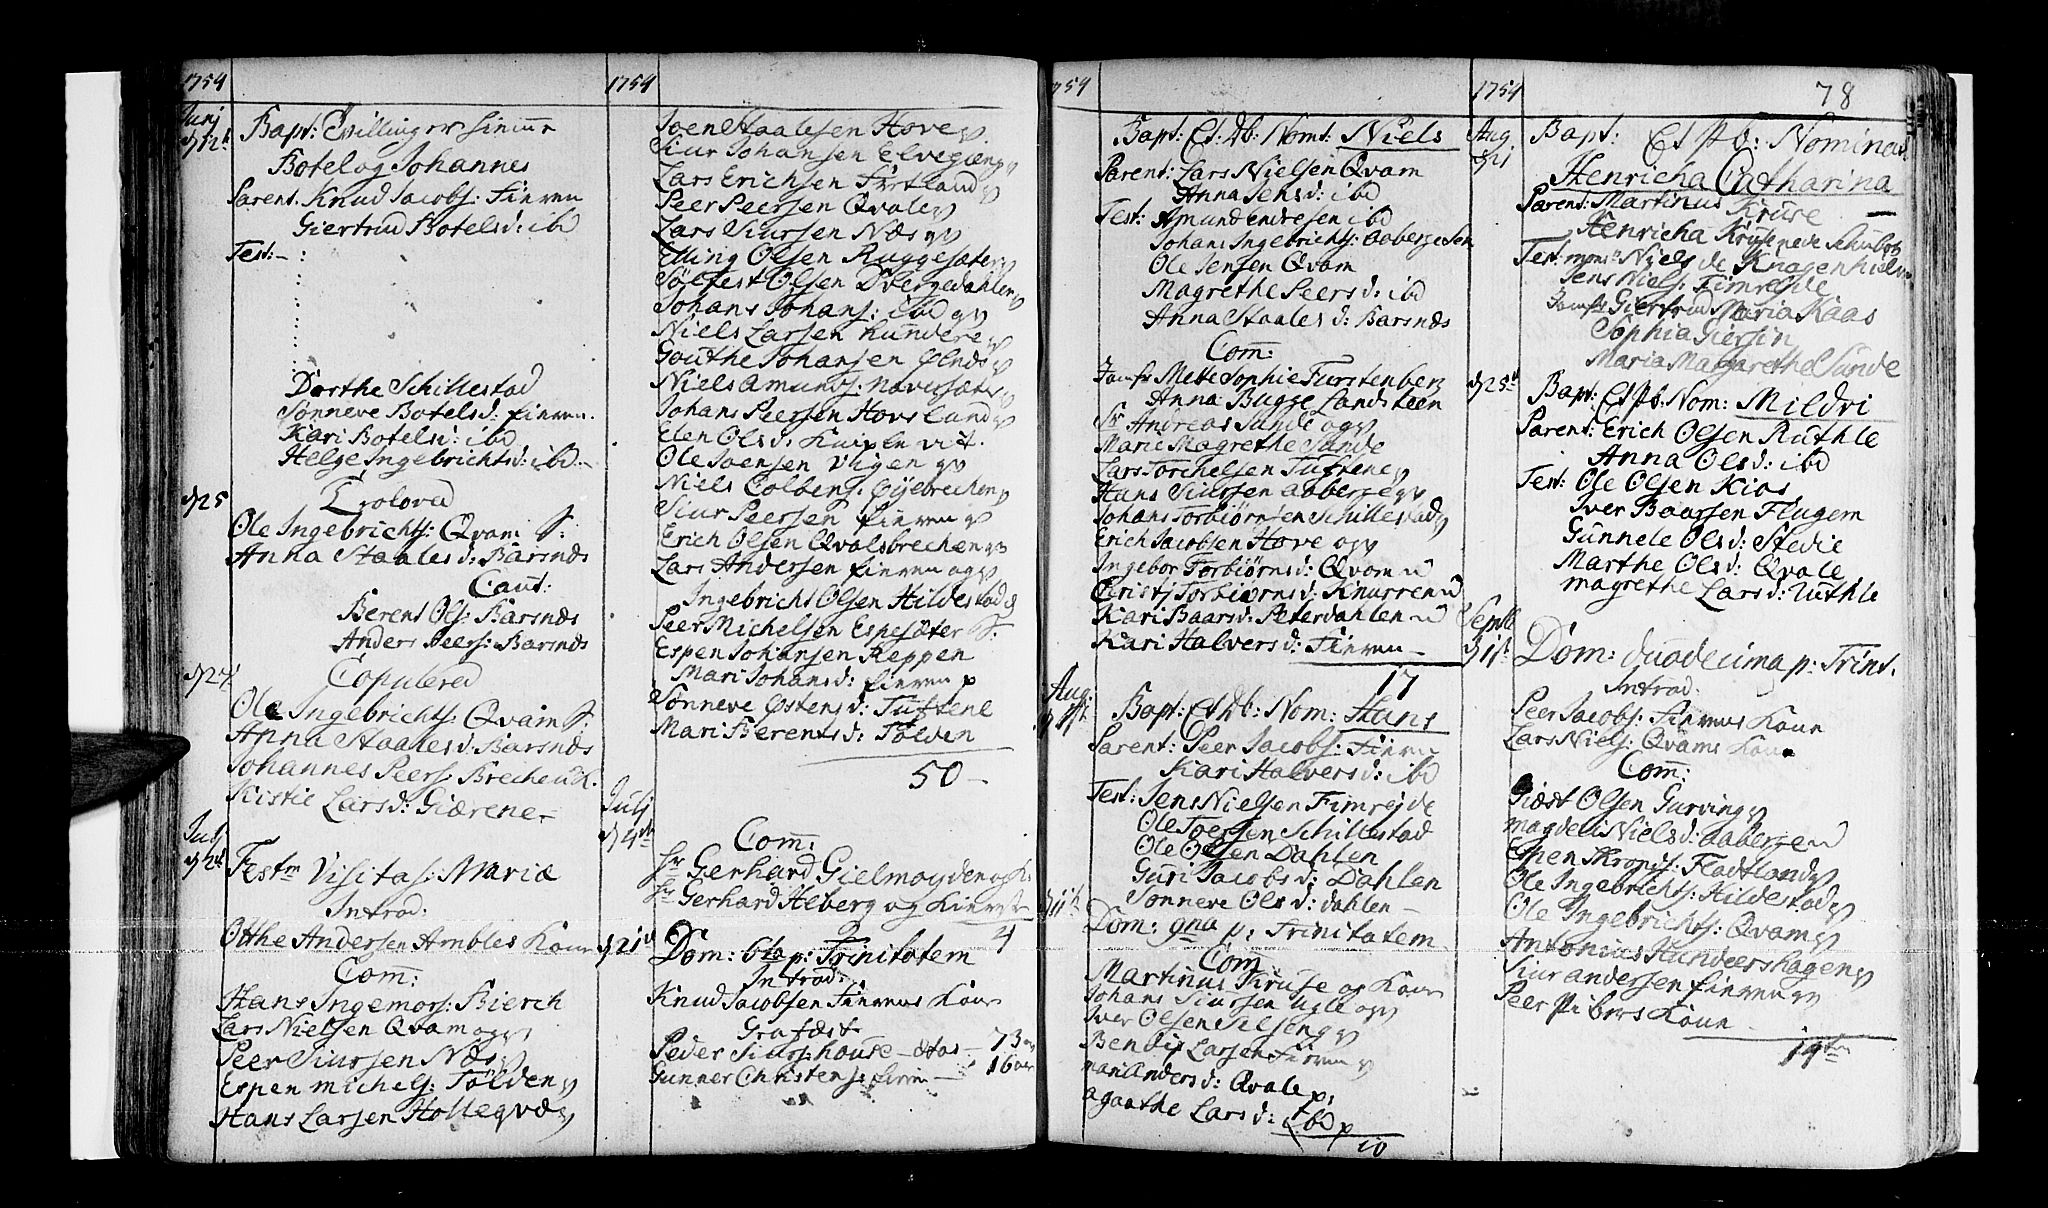 1754
Junj
d 12t
Bapt: Tvillinger
Botel og Johannes
Parent. Knud Jacobs: Fimren
Giertrud Botelsd: ibd
Test: -
Dorthe Schillestad
Sønneve Botelsd: fimren.
Kari Botelsd: ibd
Helge Ingebrichtsd: ibd
d 25
Troloved
Ole Ingebrichts: Qvam S:
Anna Staalesd: Barsnæs
Caut:
Berent Ols: Barsnæs
Anders Peers: Barsnæs
d 24
Copulered
Ole Ingebrichts: Qvam S.
Anna Staalesd: Barsnæs
Johannes Peers
Kistie Larsd: Giærene
Julj
d 2d
Festm Visitas: Mariæ
Introd:
Otthe Andersen Ambles Kone
Com:
Hans Ingemors: Bierch
Lars Nielsen Qvam og
Peer Siursen Næs
Espen Michels: Tølden
Hans Larsen
1754
Joen Staalesen Hove
Siur Johansen
Lars Erichsen Førtland
Peer Peersen Qvale
Lars Siursen Næs
Elling Olsen Ruggesæter
Sylfest Olsen Dvergedahlen
Johans Johans: ibd
Niels Larsen hundere
Gouthe Johansen Ølnæs
Niels Amunds:
Johans Peersen Hovland
Elen Olsd:
Ole Joensen
Niels Colbens:
Siur Peersen fimren
Erich Olsen Qvalsbrechen
Lars Andersen fimren og
Ingebricht Olsen Hildestad
Peer Michelsen Espesæter S.
Espen Johansen Reppen
Mari Johansd: fimren
Sønneve Østensd: Tuftene
Mari Berentsd: Tølden
50
Julj
d 4de
Com:
Hr Gerhard Gielmoyden og K.
Hr Gerhard Heberg og
4
d 21d
Dom: 6ta p: Trinitatem
Introd:
Knud Jacobsen Fimrens Kone
Grafæst
Peder Siurs: house 73
Gunner Christens: fimr 16
1754
Bapt: Et. Db: Nomt: Niels
Parent: Lars Nielsen Qvam
Anna Jensd: ibd
Test: Amund endresen ibd
Johans Ingebrichts: Aaberge
Ole Jensen Qvam
Magrethe Peersd: ibd
Anna Staalesd: Barsnæs
Com:
Jomfr Mette Sophie Furstenberg
Anna Bugge Landsteen
Sr Andreas Sunde og
Marie Magrethe Sunde
Lars Torchelsen Tuftene
Hans Siursen Aaberge
Johans Torbiørnsen Schillestad
Erich Jacobsen Hove og
Ingebor Torbiørnsd: Qvam
Christj Torbiørnsd: Knurren
Kari Baarsd: Peterdahlen
Kari Halversd: Fimren
17
Aug:
Bapt: Et Db: Nom: Hans
Parent: Peer Jacobs: Fimren
Kari Halversd: ibd
Test: Jens Nielsen Fimrejde
Ole Joersen Schillestad
Ole Olsen Dahlen
Guri Jacobsd: Dahlen
Sønneve Olsd: dahlen
d 11t
Dom: 9na p: Trinitatem
Com
Martinus Kruse og Kone
Johans Siursen Ugle og
Iver Olsen Selseng
Bendix Larsen Fimren
mari Andersd: Qvale
agaathe Larsd: Ibd
10
1754
78
Aug
d 21
Bapt: Et Pb: Nominat
Henricha Catharina
Parent: Martinus Kruse
Henricha Kruse nede Schuboe
Test: Niels de Knagenhielm
Jens Niels: Fimrejde
Jomfr Giertrud Maria Kaas
Sophia Giersin
Maria Margarethe Sunde
d 25t
Bapt: Et Pb. Nom: Mildri
Parent: Erich Olsen Ruthle
Anna Olsd: ibd
Test: Ole Olsen Kios
Iver Baarsen Flugem
Gunnele Olsd: Stedie
Marthe Olsd: Qvale
magrethe Larsd: Ruthle
Septb
Dom: duodecima p: Trint.
Introd:
Peer Jacobs: Fimrens Kone
Lars Niels: Qvams Kone
Com:
Giæst Olsen Gurving
magdeli Nielsd: Aaberge
Espen Fladtland
Ole Ingebrichts: Hildestad
Ole Ingebrichts: Qvam
Antonius Hundershagen
Siur andersen fimren
Peer Pibers Kone
19